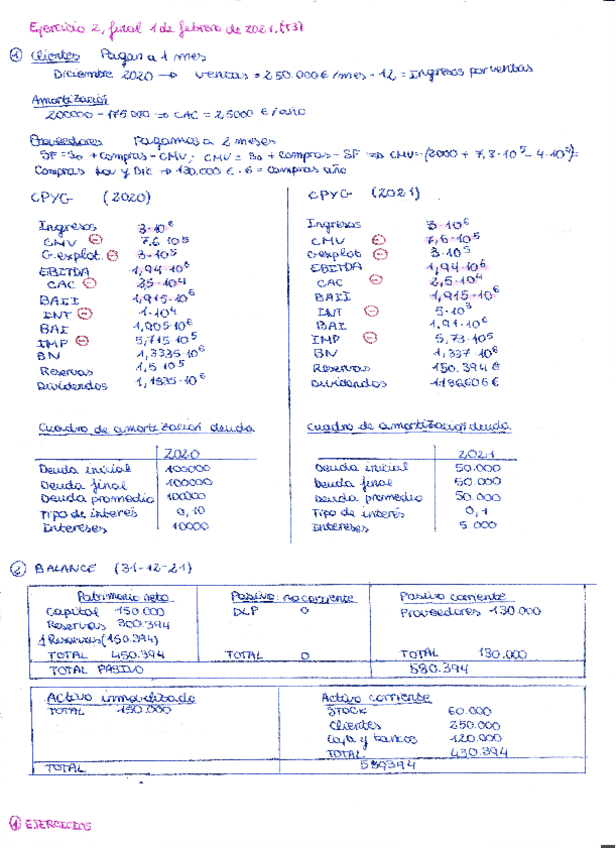 Ejercicio 2, final 1 de febrero de 2021, (T3)
① Clientes Pagan a 1 mes
Diciembre 2020 → ventas = 250.000€/mes · 12 = Ingresos por ventas
Amortización
200000 - 175000 ⇒ CAC = 25000 €/año
Proveedores Pagamos a 2 meses
SF = S0 + compras - CMV; CMV = S0 + compras - SF ⇒ CMV = (2000 + 7,8·10⁵ - 4·10⁴)=
Compras Nov y Dic → 130.000 € · 6 = compras año
CPYG (2020)
Ingresos 3·10⁶
CMV ⊖ 7,6·10⁵
G.explot. ⊖ 3·10⁵
EBITDA 1,94·10⁶
CAC ⊖ 25·10⁴
BAII 1,915·10⁶
INT ⊖ 1·10⁴
BAI 1,905·10⁶
IMP ⊖ 5,715·10⁵
BN 1,3335·10⁶
Reservas 1,5·10⁵
Dividendos 1,1835·10⁶
CPYG (2021)
Ingresos 3·10⁶
CMV ⊖ 7,6·10⁵
G.explot ⊖ 3·10⁵
EBITDA 1,94·10⁶
CAC ⊖ 2,5·10⁴
BAII 1,915·10⁶
INT ⊖ 5·10³
BAI 1,91·10⁶
IMP ⊖ 5,73·10⁵
BN 1,337·10⁶
Reservas 150.394€
Dividendos 1186606€
Cuadro de amortización deuda
2020
Deuda inicial 100000
Deuda final 100000
Deuda promedio 100000
Tipo de interés 0,10
Intereses 10000
Cuadro de amortización deuda
2021
Deuda inicial 50.000
Deuda final 50.000
Deuda promedio 50.000
Tipo de interés 0,1
Intereses 5.000
② BALANCE (31-12-21)
Patrimonio neto Pasivo no corriente Pasivo corriente
Capital 150.000 DLP 0 Proveedores 130.000
Reservas 300.394
↑Reservas (150.394)
TOTAL 450.394 TOTAL 0 TOTAL 130.000
TOTAL PASIVO 580.394
Activo inmovilizado Activo corriente
TOTAL 150.000 STOCK 60.000
Clientes 250.000
Caja y bancos 120.000
TOTAL 430.394
TOTAL 580394
① EJERCICIOS